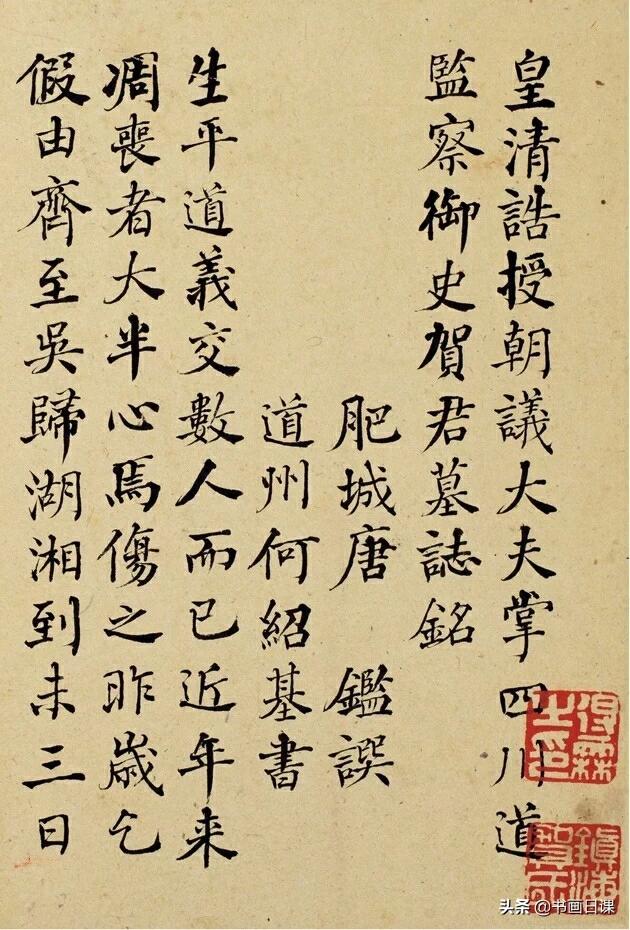 皇清誥授朝議大夫掌四川道
監察御史賀君墓誌銘
肥城唐 鑑譔
道州何紹基書
生平道義交數人而已近年来
凋喪者大半心焉傷之昨歲乞
假由齊至吳歸湖湘到未三日
头条 @书画日课